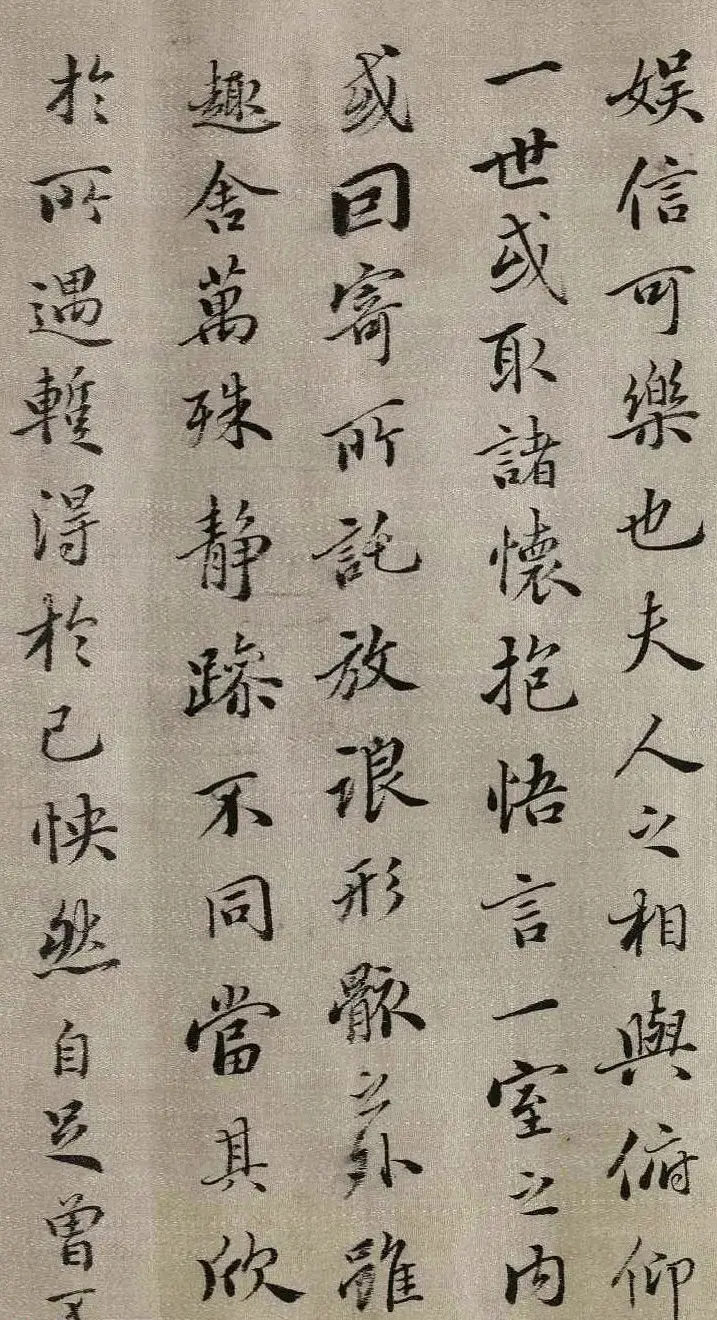 娱信可樂也夫人之相與俯仰
一世或取諸懷抱悟言一室之内
或回寄所託放浪形骸之外雖
趣舍萬殊静躁不同當其欣
於所遇暫得於己怏然自足曾不